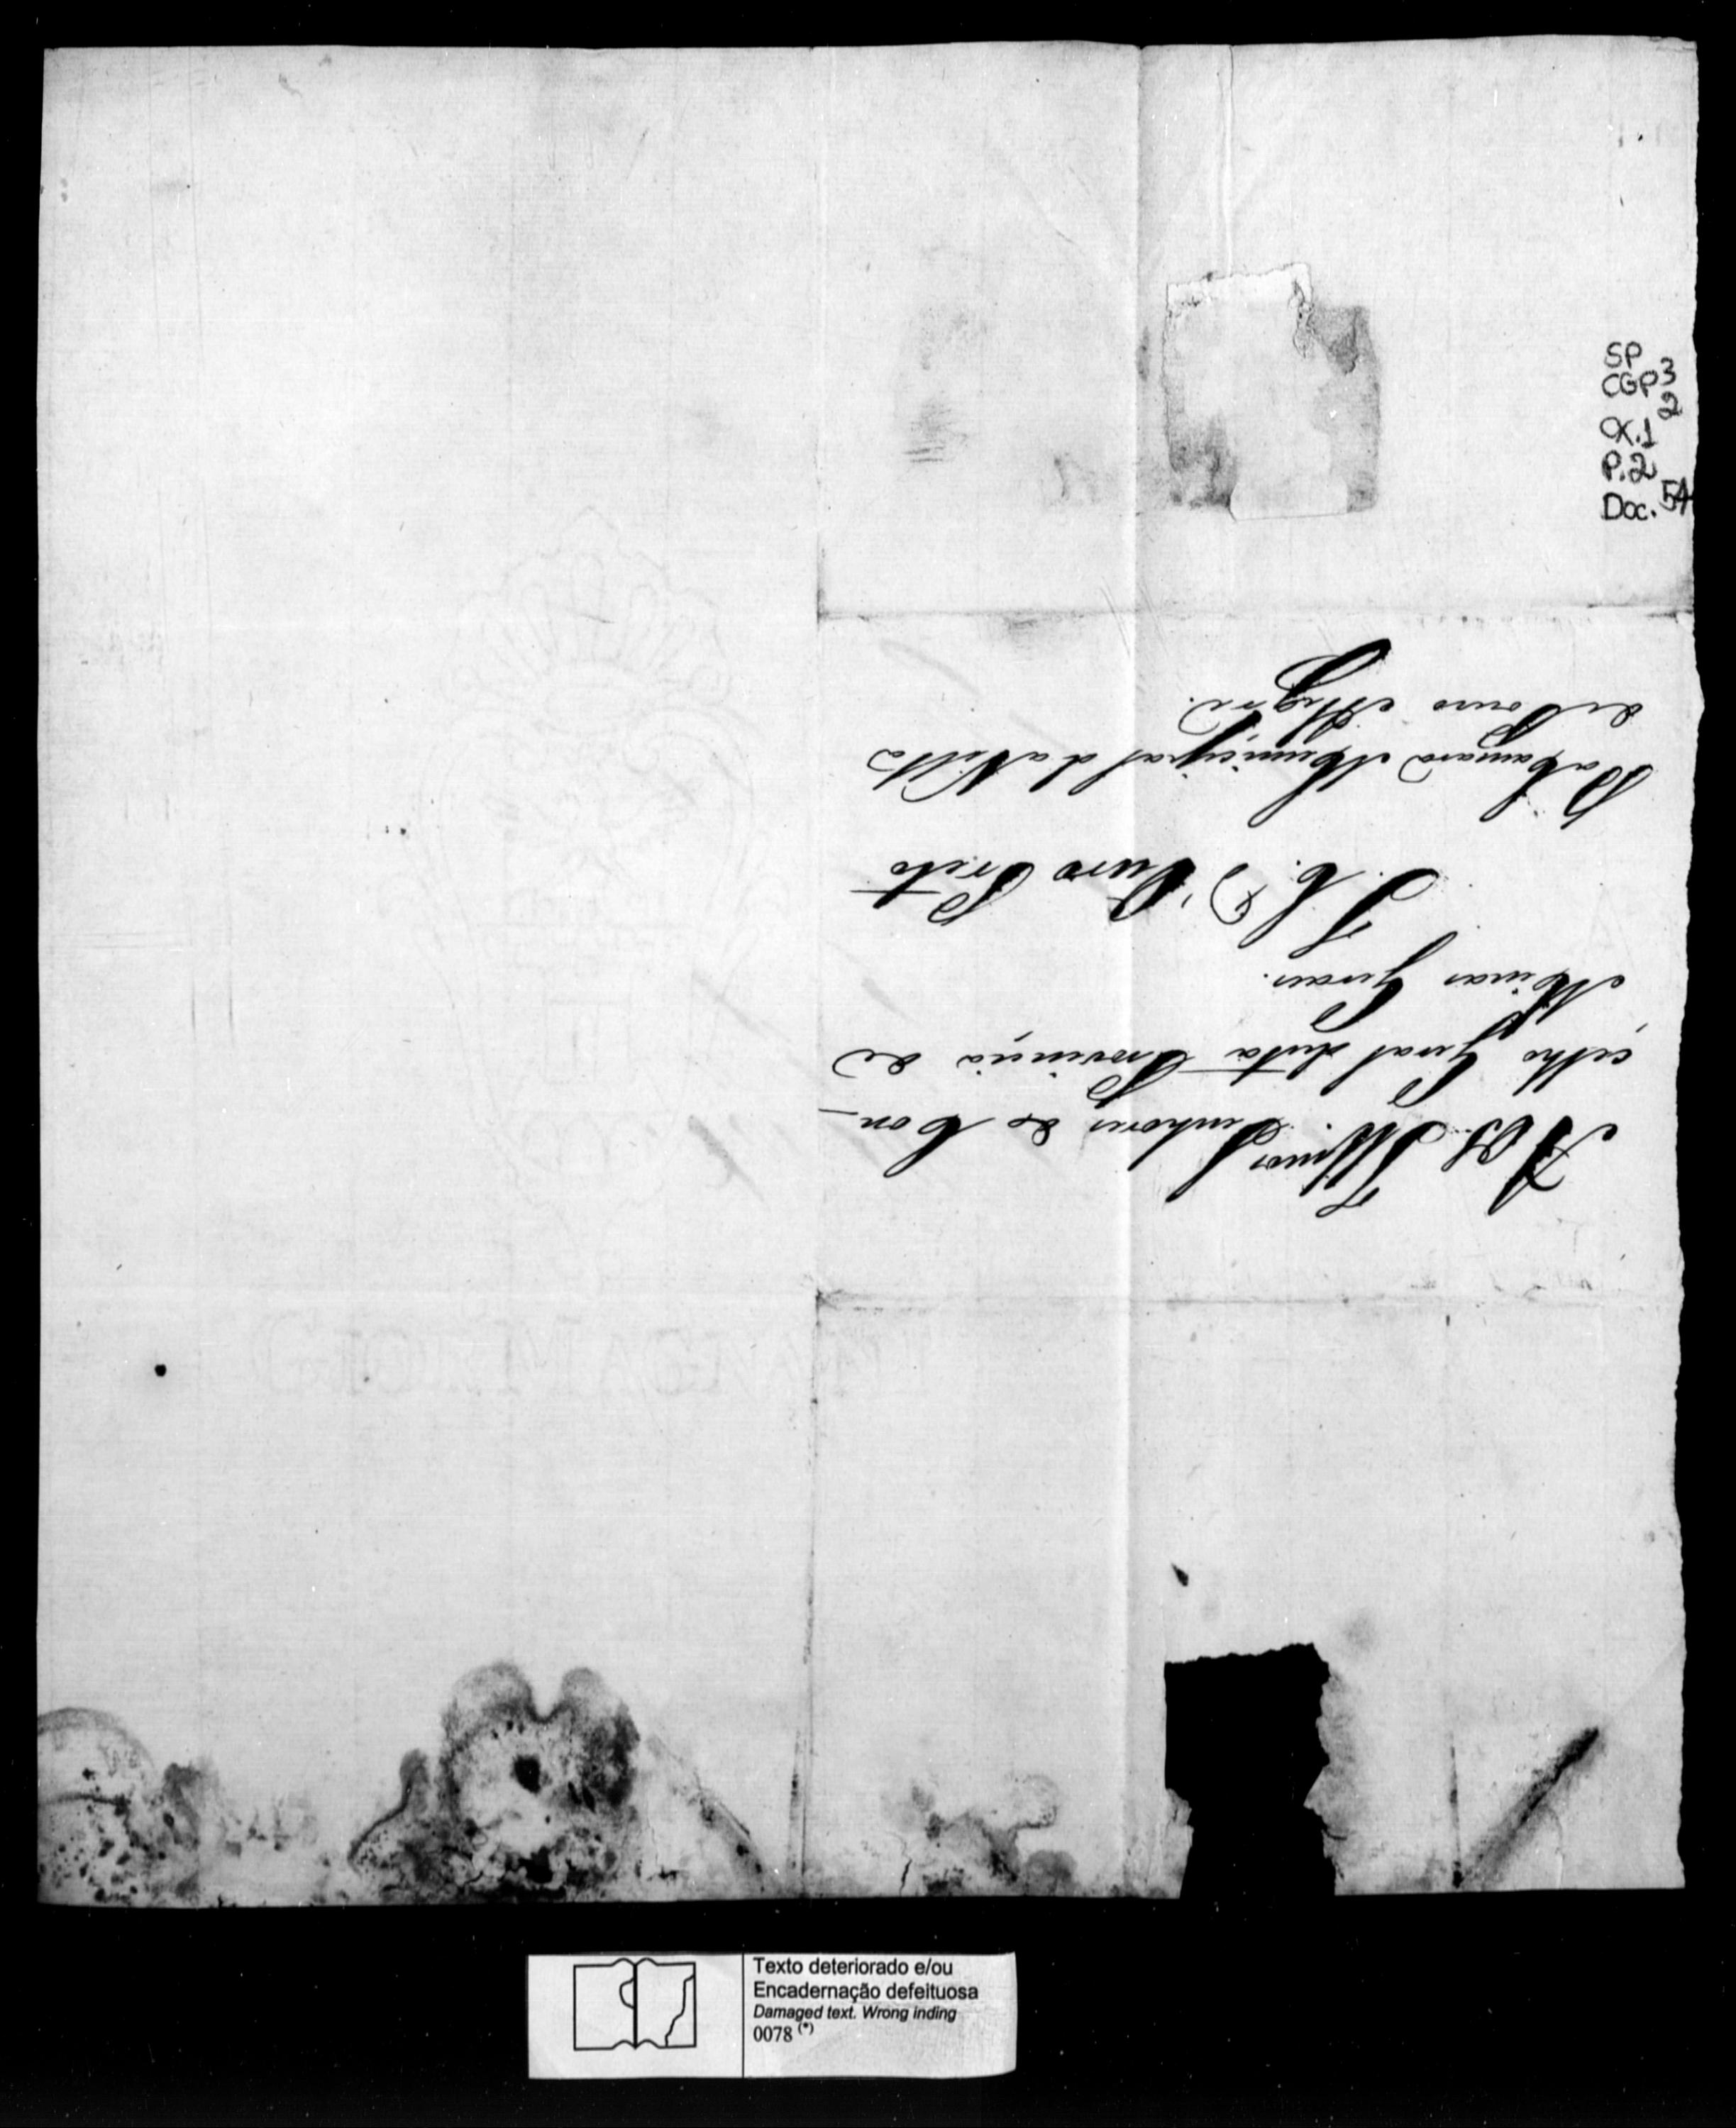 SP
CGP 3
CX.1 2
P.2
Doc. 54
Aos Illmos. Senhores do Con-
celho Geral desta Provincia de
Minas Geraes.
I. C. D'Ouro Preto
Da Camara Municipal da Villa
de Pouso Alegre.
Texto deteriorado e/ou
Encadernação defeituosa
Damaged text. Wrong inding
0078 (*)